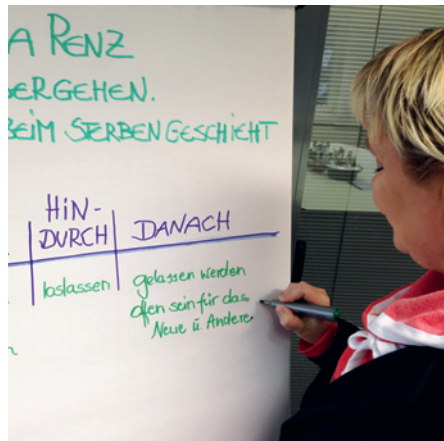 A RENZ
ERGEHEN.
BEIM STERBEN GESCHIEHT
HIN-
DURCH
DANACH
loslassen
gelassen werden
offen sein für das
Neue ü Andere